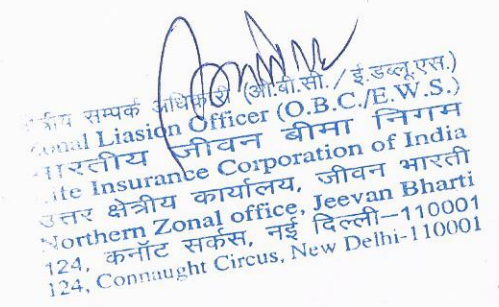 क्षेत्रीय सम्पर्क अधिकारी (ओ.बी.सी./ई.डब्लू.एस.)
Zonal Liasion Officer (O.B.C./E.W.S.)
भारतीय जीवन बीमा निगम
Life Insurance Corporation of India
उत्तर क्षेत्रीय कार्यालय, जीवन भारती
Northern Zonal office, Jeevan Bharti
124, कनॉट सर्कस, नई दिल्ली–110001
124, Connaught Circus, New Delhi-110001